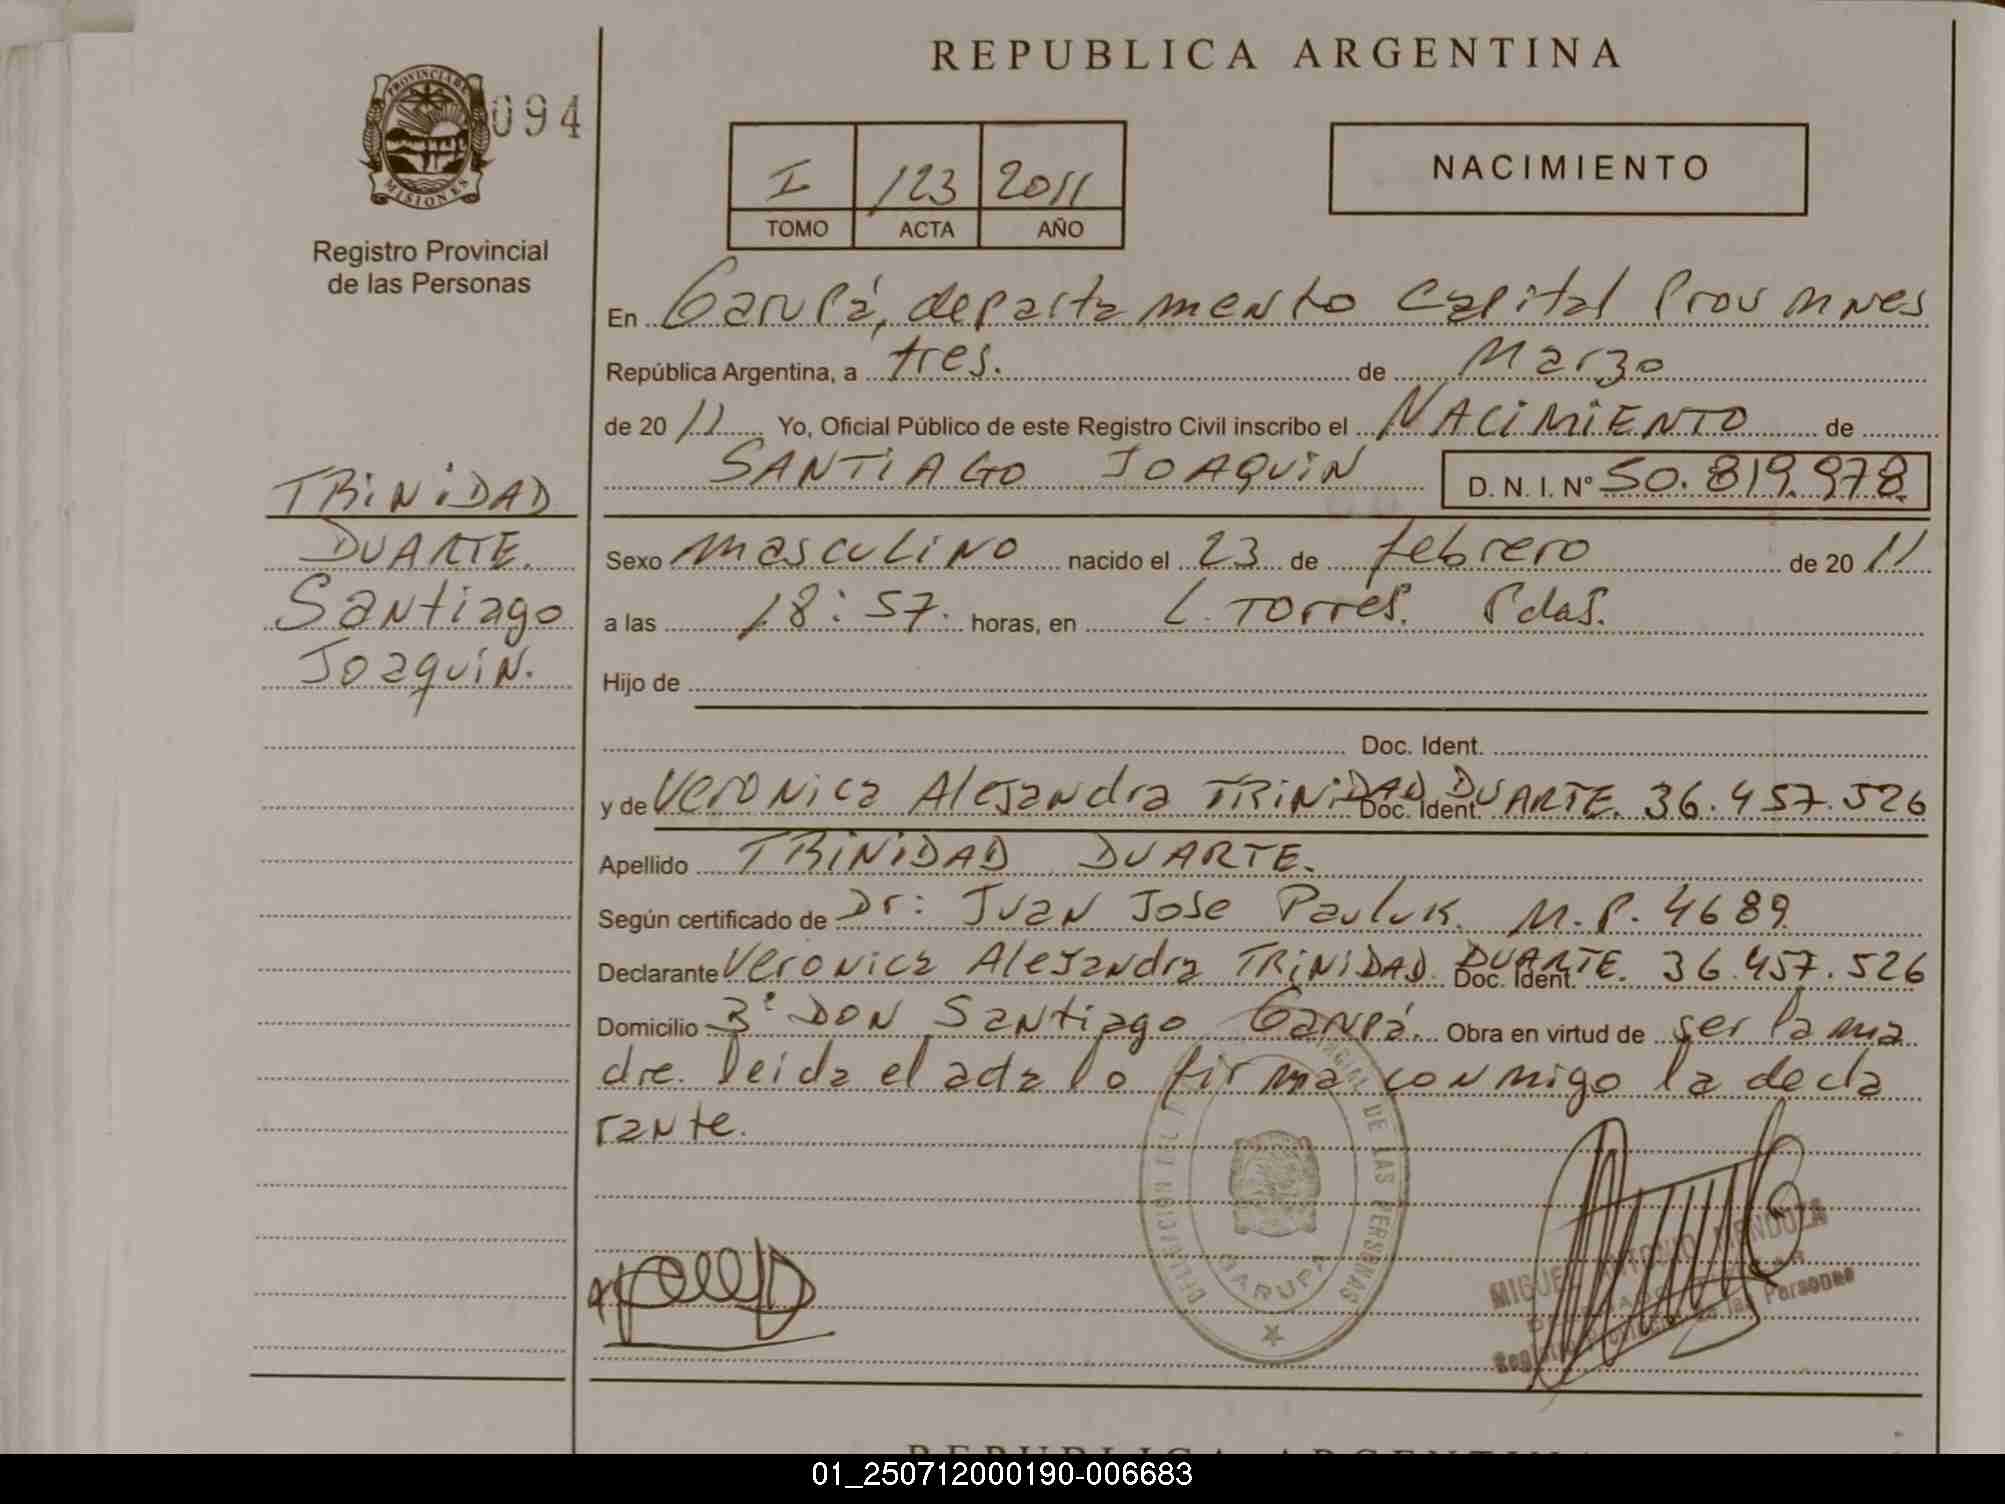 REPUBLICA ARGENTINA
PROVINCIA DE
MISIONES
094
Registro Provincial
de las Personas
I 123 2011
TOMO ACTA AÑO
NACIMIENTO
En Garupá, departamento Capital Prov Mnes
República Argentina, a tres. de Marzo
de 20 11 Yo, Oficial Público de este Registro Civil inscribo el NACIMIENTO de
SANTIAGO JOAQUIN D. N. I. N° 50.819.978
TRINIDAD
DUARTE.
Santiago
Joaquin.
Sexo masculino nacido el 23 de febrero de 20 11
a las 18:57. horas, en L. Torres. Pdas.
Hijo de
Doc. Ident.
y de Veronica Alejandra TRINIDAD DUARTE. Doc. Ident. 36.457.526
Apellido TRINIDAD DUARTE.
Según certificado de Dr: Juan Jose Pauluk. M.P. 4689
Declarante Veronica Alejandra TRINIDAD DUARTE. Doc. Ident. 36.457.526
Domicilio B° DON Santiago Garupá. Obra en virtud de ser la ma
dre. leida el acta lo firma conmigo la decla
rante.
DE LAS PERSONAS
GARUPA
MIGUEL ANTONIO MENDOZA
las Personas
REPUBLICA ARGENTINA
01_250712000190-006683